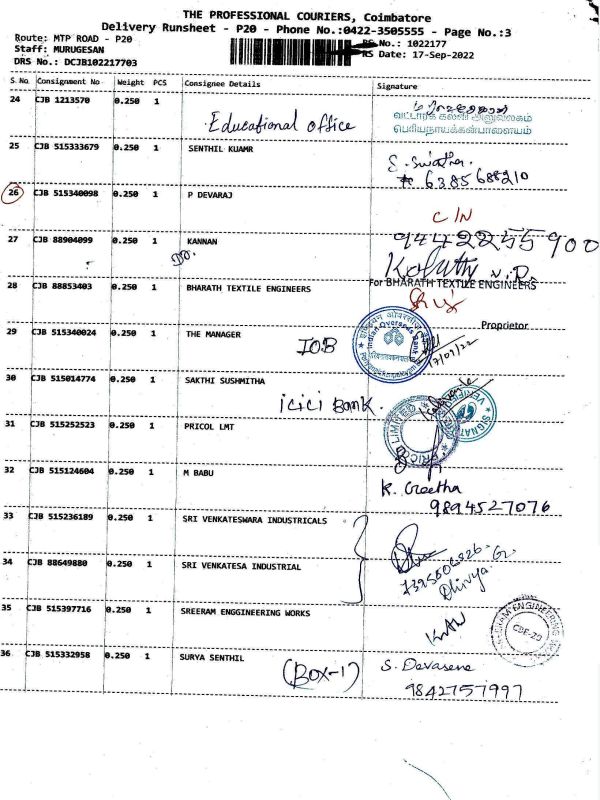 THE PROFESSIONAL COURIERS, Coimbatore
Delivery Runsheet - P20 - Phone No.:0422-3505555 - Page No.:3
Route: MTP ROAD - P20
RS No.: 1022177
Staff: MURUGESAN
RS Date: 17-Sep-2022
DRS No.: DCJB102217703
S.No. Consignment No Weight PCS Consignee Details Signature
24 CJB 1213570 0.250 1 Educational office
வட்டாரக் கல்வி அலுவலகம்
பெரியநாயக்கன்பாளையம்
25 CJB 515333679 0.250 1 SENTHIL KUAMR
S. Swatha
6385688210
26 CJB 515340098 0.250 1 P DEVARAJ
C/N
27 CJB 88904099 0.250 1 KANNAN
9442255900
28 CJB 88853403 0.250 1 BHARATH TEXTILE ENGINEERS
For BHARATH TEXTILE ENGINEERS
Proprietor
29 CJB 515340024 0.250 1 THE MANAGER
IOB
Indian Overseas Bank
17/09/22
30 CJB 515014774 0.250 1 SAKTHI SUSHMITHA
icici Bank.
31 CJB 515252523 0.250 1 PRICOL LMT
LIMITED
32 CJB 515124604 0.250 1 M BABU
K. Geetha
9894527076
33 CJB 515236189 0.250 1 SRI VENKATESWARA INDUSTRICALS
34 CJB 88649880 0.250 1 SRI VENKATESA INDUSTRIAL
Dhivya
35 CJB 515397716 0.250 1 SREERAM ENGGINEERING WORKS
ENGINEERING
CBE-20
36 CJB 515332958 0.250 1 SURYA SENTHIL
(BOX-1)
S. Devasena
9842757997